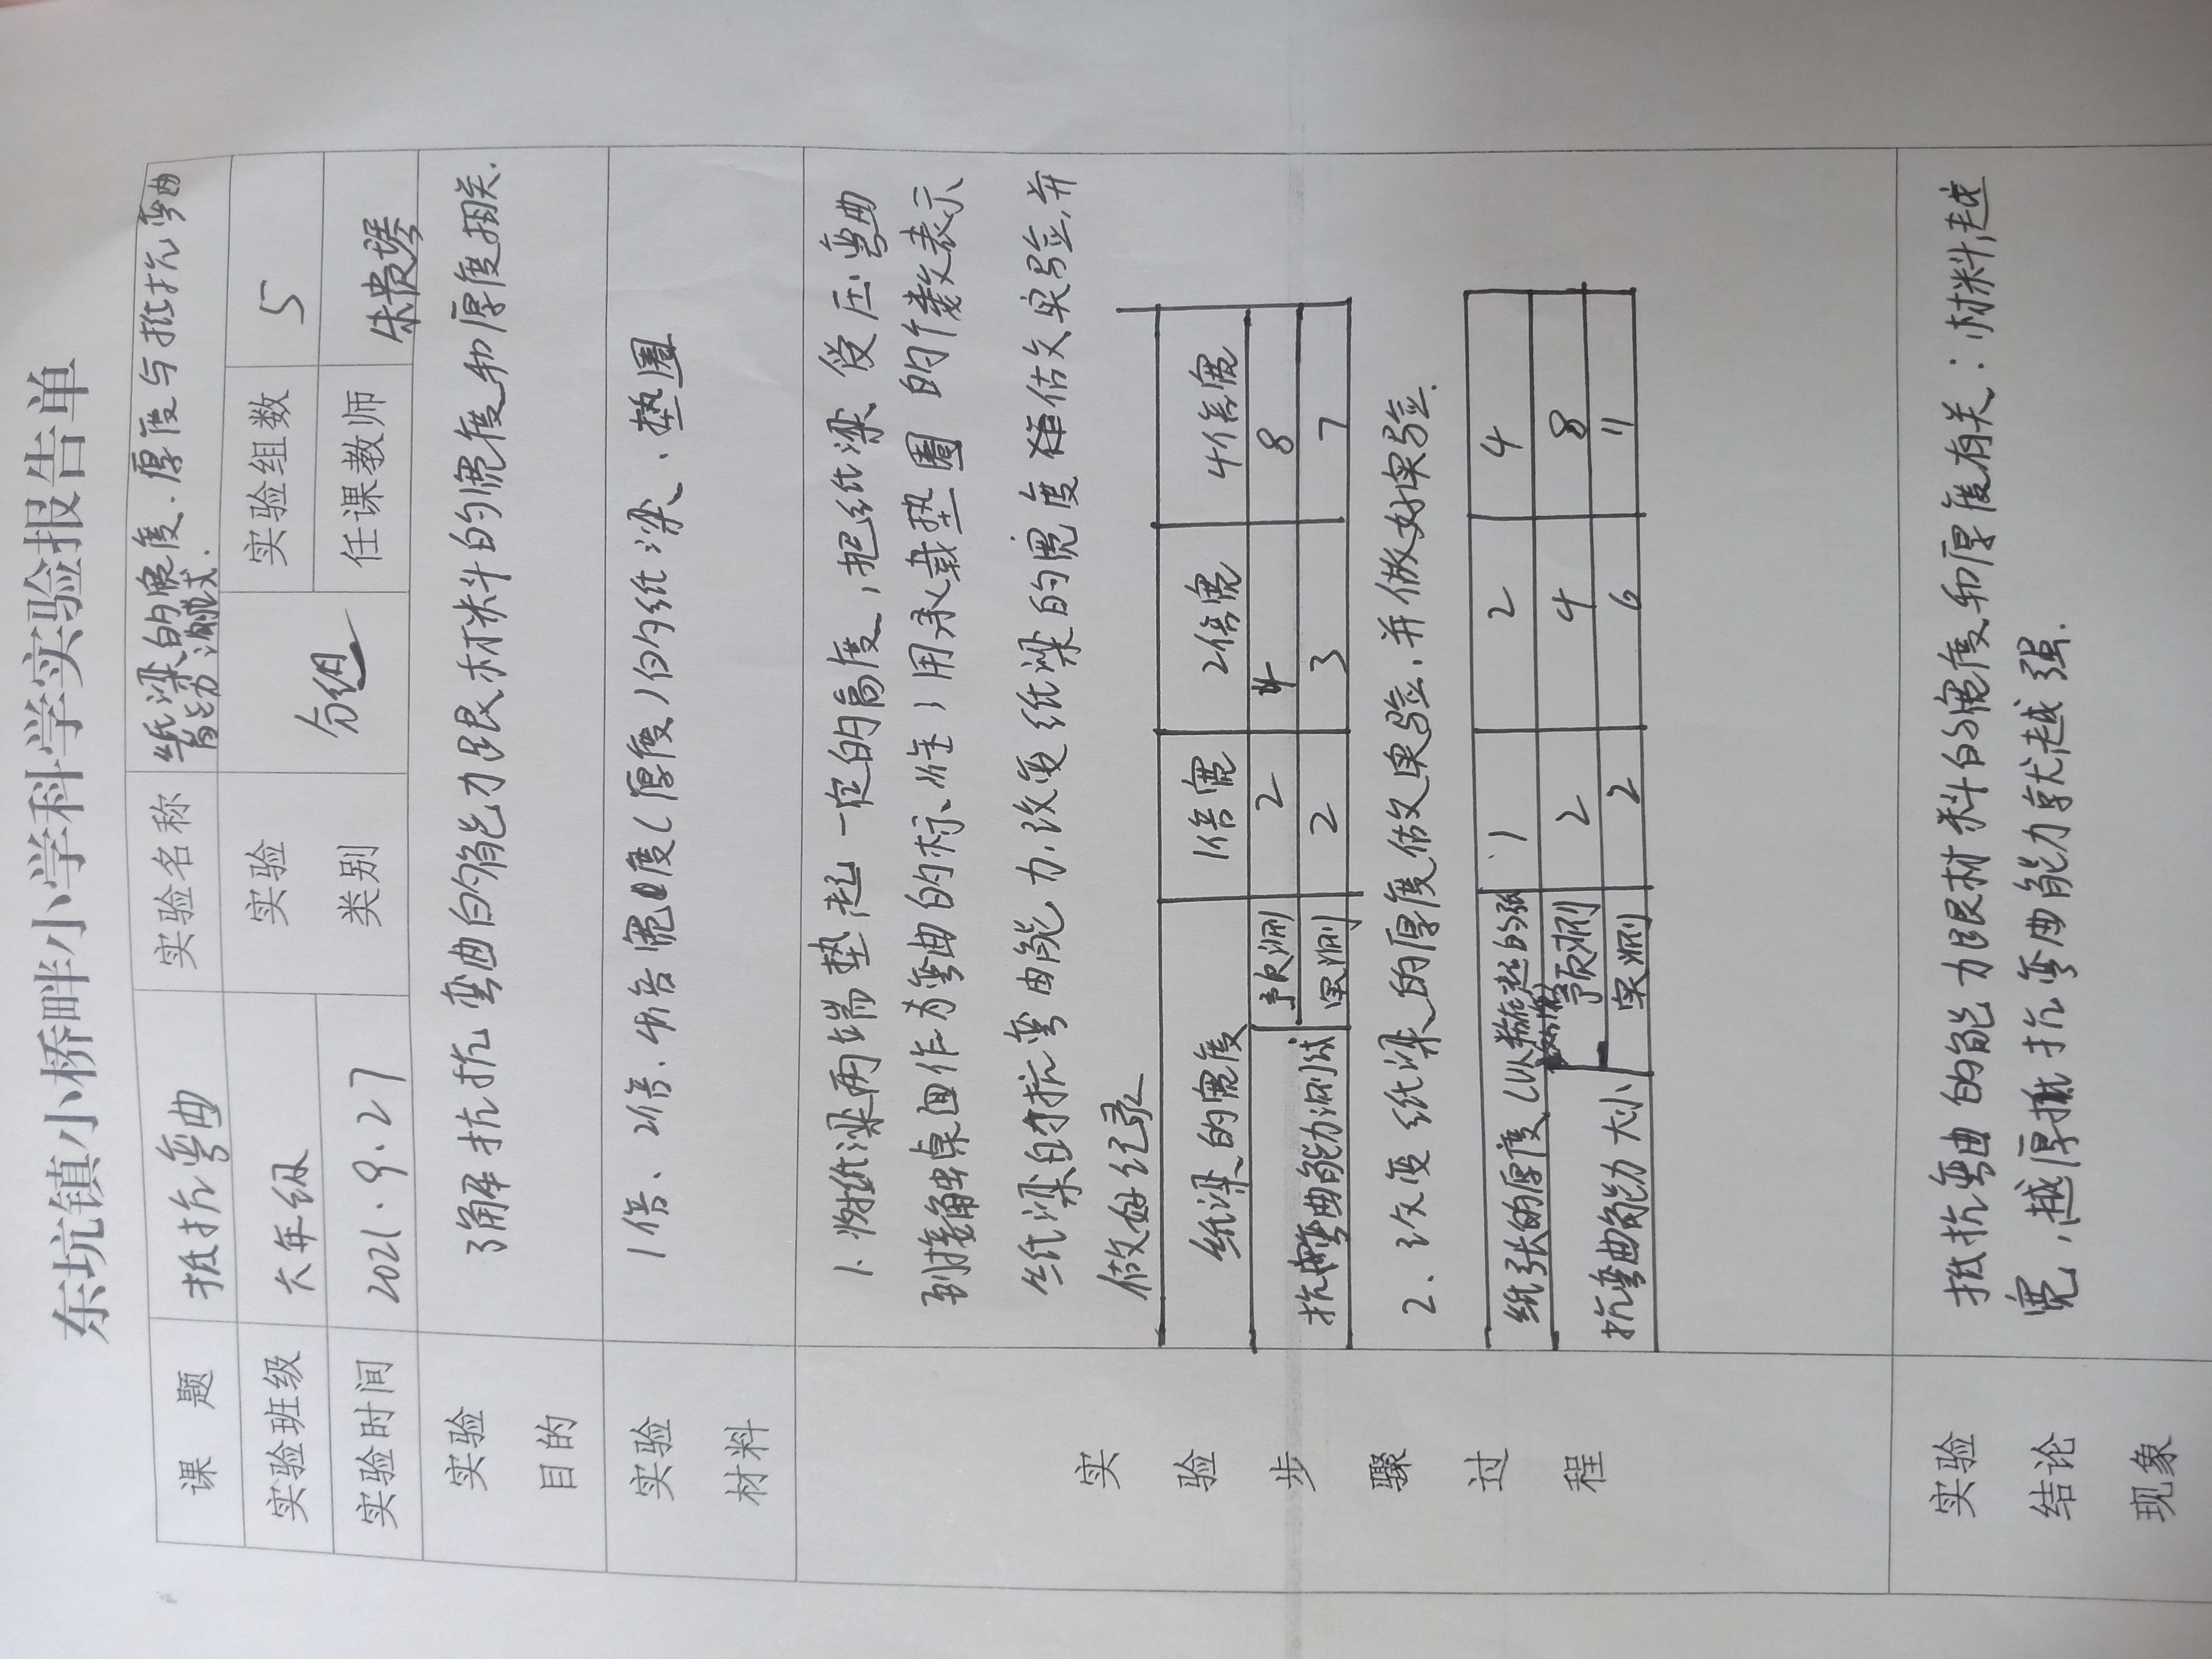 东坑镇小桥畔小学科学实验报告单
课 题 抵抗弯曲 实验名称 纸梁的宽度、厚度与抵抗弯曲
能力测试.
实验班级 六年级 实验 类别 分组 实验组数 5
实验时间 2021.9.27 任课教师 朱贵
实验 目的 了解抵抗弯曲的能力跟材料的宽度和厚度相关.
实验 材料 1倍、2倍、4倍宽度(厚度)的纸梁、垫圈
实 验 步 骤 过 程
1.将纸梁两端垫起一定的高度,把纸梁受压弯曲
到接触桌面作为弯曲的标准,用承载垫圈的个数表示
纸梁的抗弯曲能力.改变纸梁的宽度 做实验,并
做好纪录
纸梁的宽度 1倍宽 2倍宽 4倍宽
抗弯曲能力测试 预测 2 4 8
实测 2 3 7
2.改变纸梁的厚度做实验,并做好实验.
纸张的厚度(以叠在起的张 1 2 4
抗弯曲能力大小 预测 2 4 8
实测 2 6 11
实验 结论 现象
抵抗弯曲的能力跟材料的宽度和厚度有关:材料越
宽,越厚抵抗弯曲能力就越强.